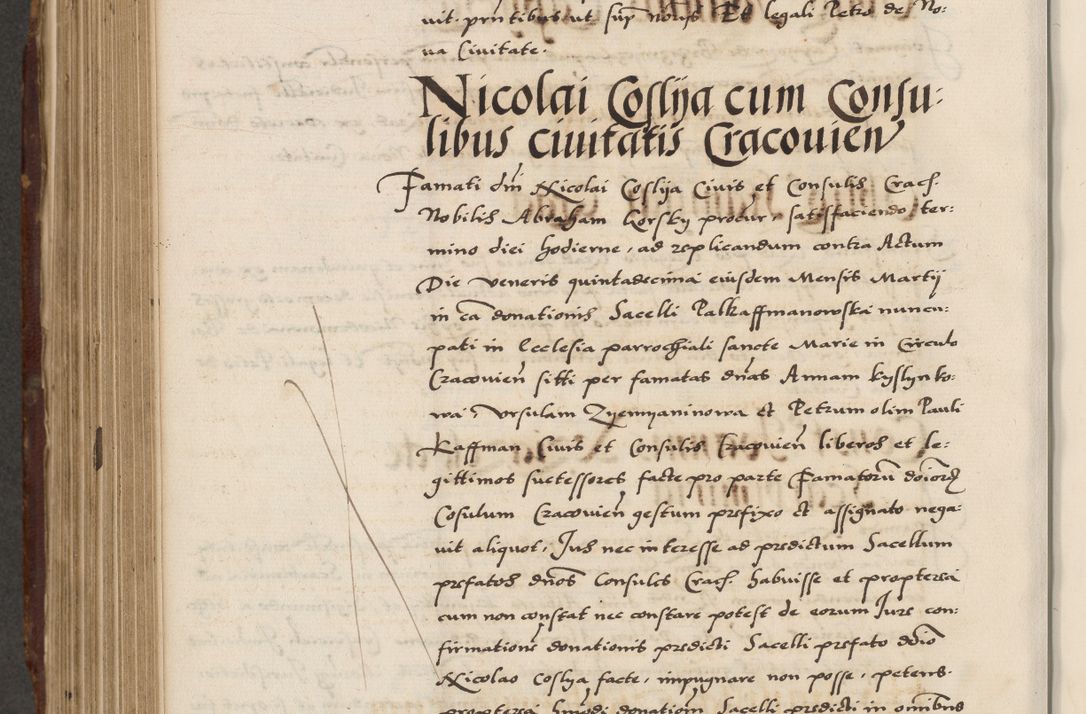 uit. prntibus ut supra notys Et legali Petro de No:
ua Ciuitate.
Nicolai Coslija cum Consu:
libus ciuitatis Cracouien
Famati dni Nicolai Coslija Ciuis et Consulis Crac.
Nobilis Abraham Gorsky procur, satisfaciendo ter:
mino diei hodierne, ad replicandum contra Actum
Die veneris quintadecima eiusdem Mensis Martij
in ca donationis Sacelli Palkaffmanowska nuncu:
pati in Ecclesia parrochiali sancte Marie in Circulo
Cracouien sitti per famatas dnas Annam kyslynko:
wa Vrsulam Zyemyaninowa et Petrum olim Pauli
Kaffman Ciuis et Consulis Cracouien liberos et le:
gittimos successores facte pro parte Famatoru doiorum
Cosulum Cracouien gestum prefixo et assignato nega:
uit aliquot, Jus nec interesse ad predictum Sacellum
prefatos dnos Consules Crac. habuisse et propterea
cum non constat nec constare potest de eorum Jure con:
firmatione donationis predicti Sacelli prefato doio
Nicolao Coslya facte, impugnare non posse, petens.
propterea hmodi donationem Sacelli predicti in omnibus